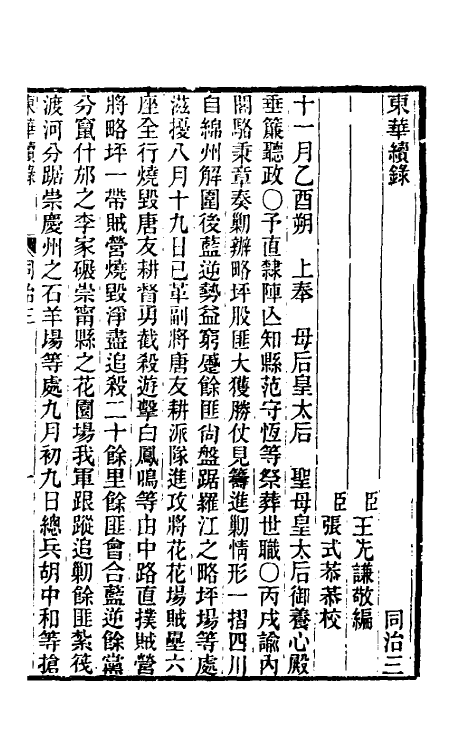 東華續錄
同治三
臣王先謙敬編
臣張式恭恭校
十一月乙酉朔　上奉　母后皇太后　聖母皇太后御養心殿
垂簾聽政〇予直隸陣亾知縣范守恆等祭葬世職〇丙戌諭內
閣駱秉章奏勦辦略坪股匪大獲勝仗見籌進勦情形一摺四川
自綿州解圍後藍逆勢益窮蹙餘匪尙盤踞羅江之略坪場等處
滋擾八月十九日已革副將唐友耕派隊進攻將花花場賊壘六
座全行燒毀唐友耕督勇截殺遊擊白鳳鳴等由中路直撲賊營
將略坪一帶賊營燒毀淨盡追殺二十餘里餘匪會合藍逆餘黨
分竄什邡之李家碾崇甯縣之花園場我軍跟蹤追勦餘匪紮筏
渡河分踞崇慶州之石羊場等處九月初九日總兵胡中和等搶
東華續錄
同治三
一